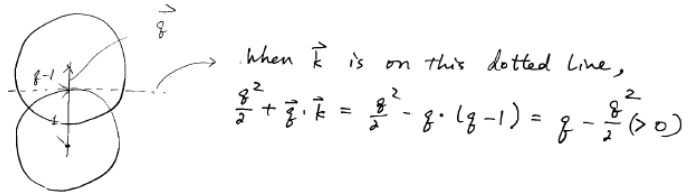 $\vec{q}$
q-1
1
When $\vec{k}$ is on this dotted line,
$\frac{q^2}{2} + \vec{q} \cdot \vec{k} = \frac{q^2}{2} - q \cdot (q-1) = q - \frac{q^2}{2} (> 0)$